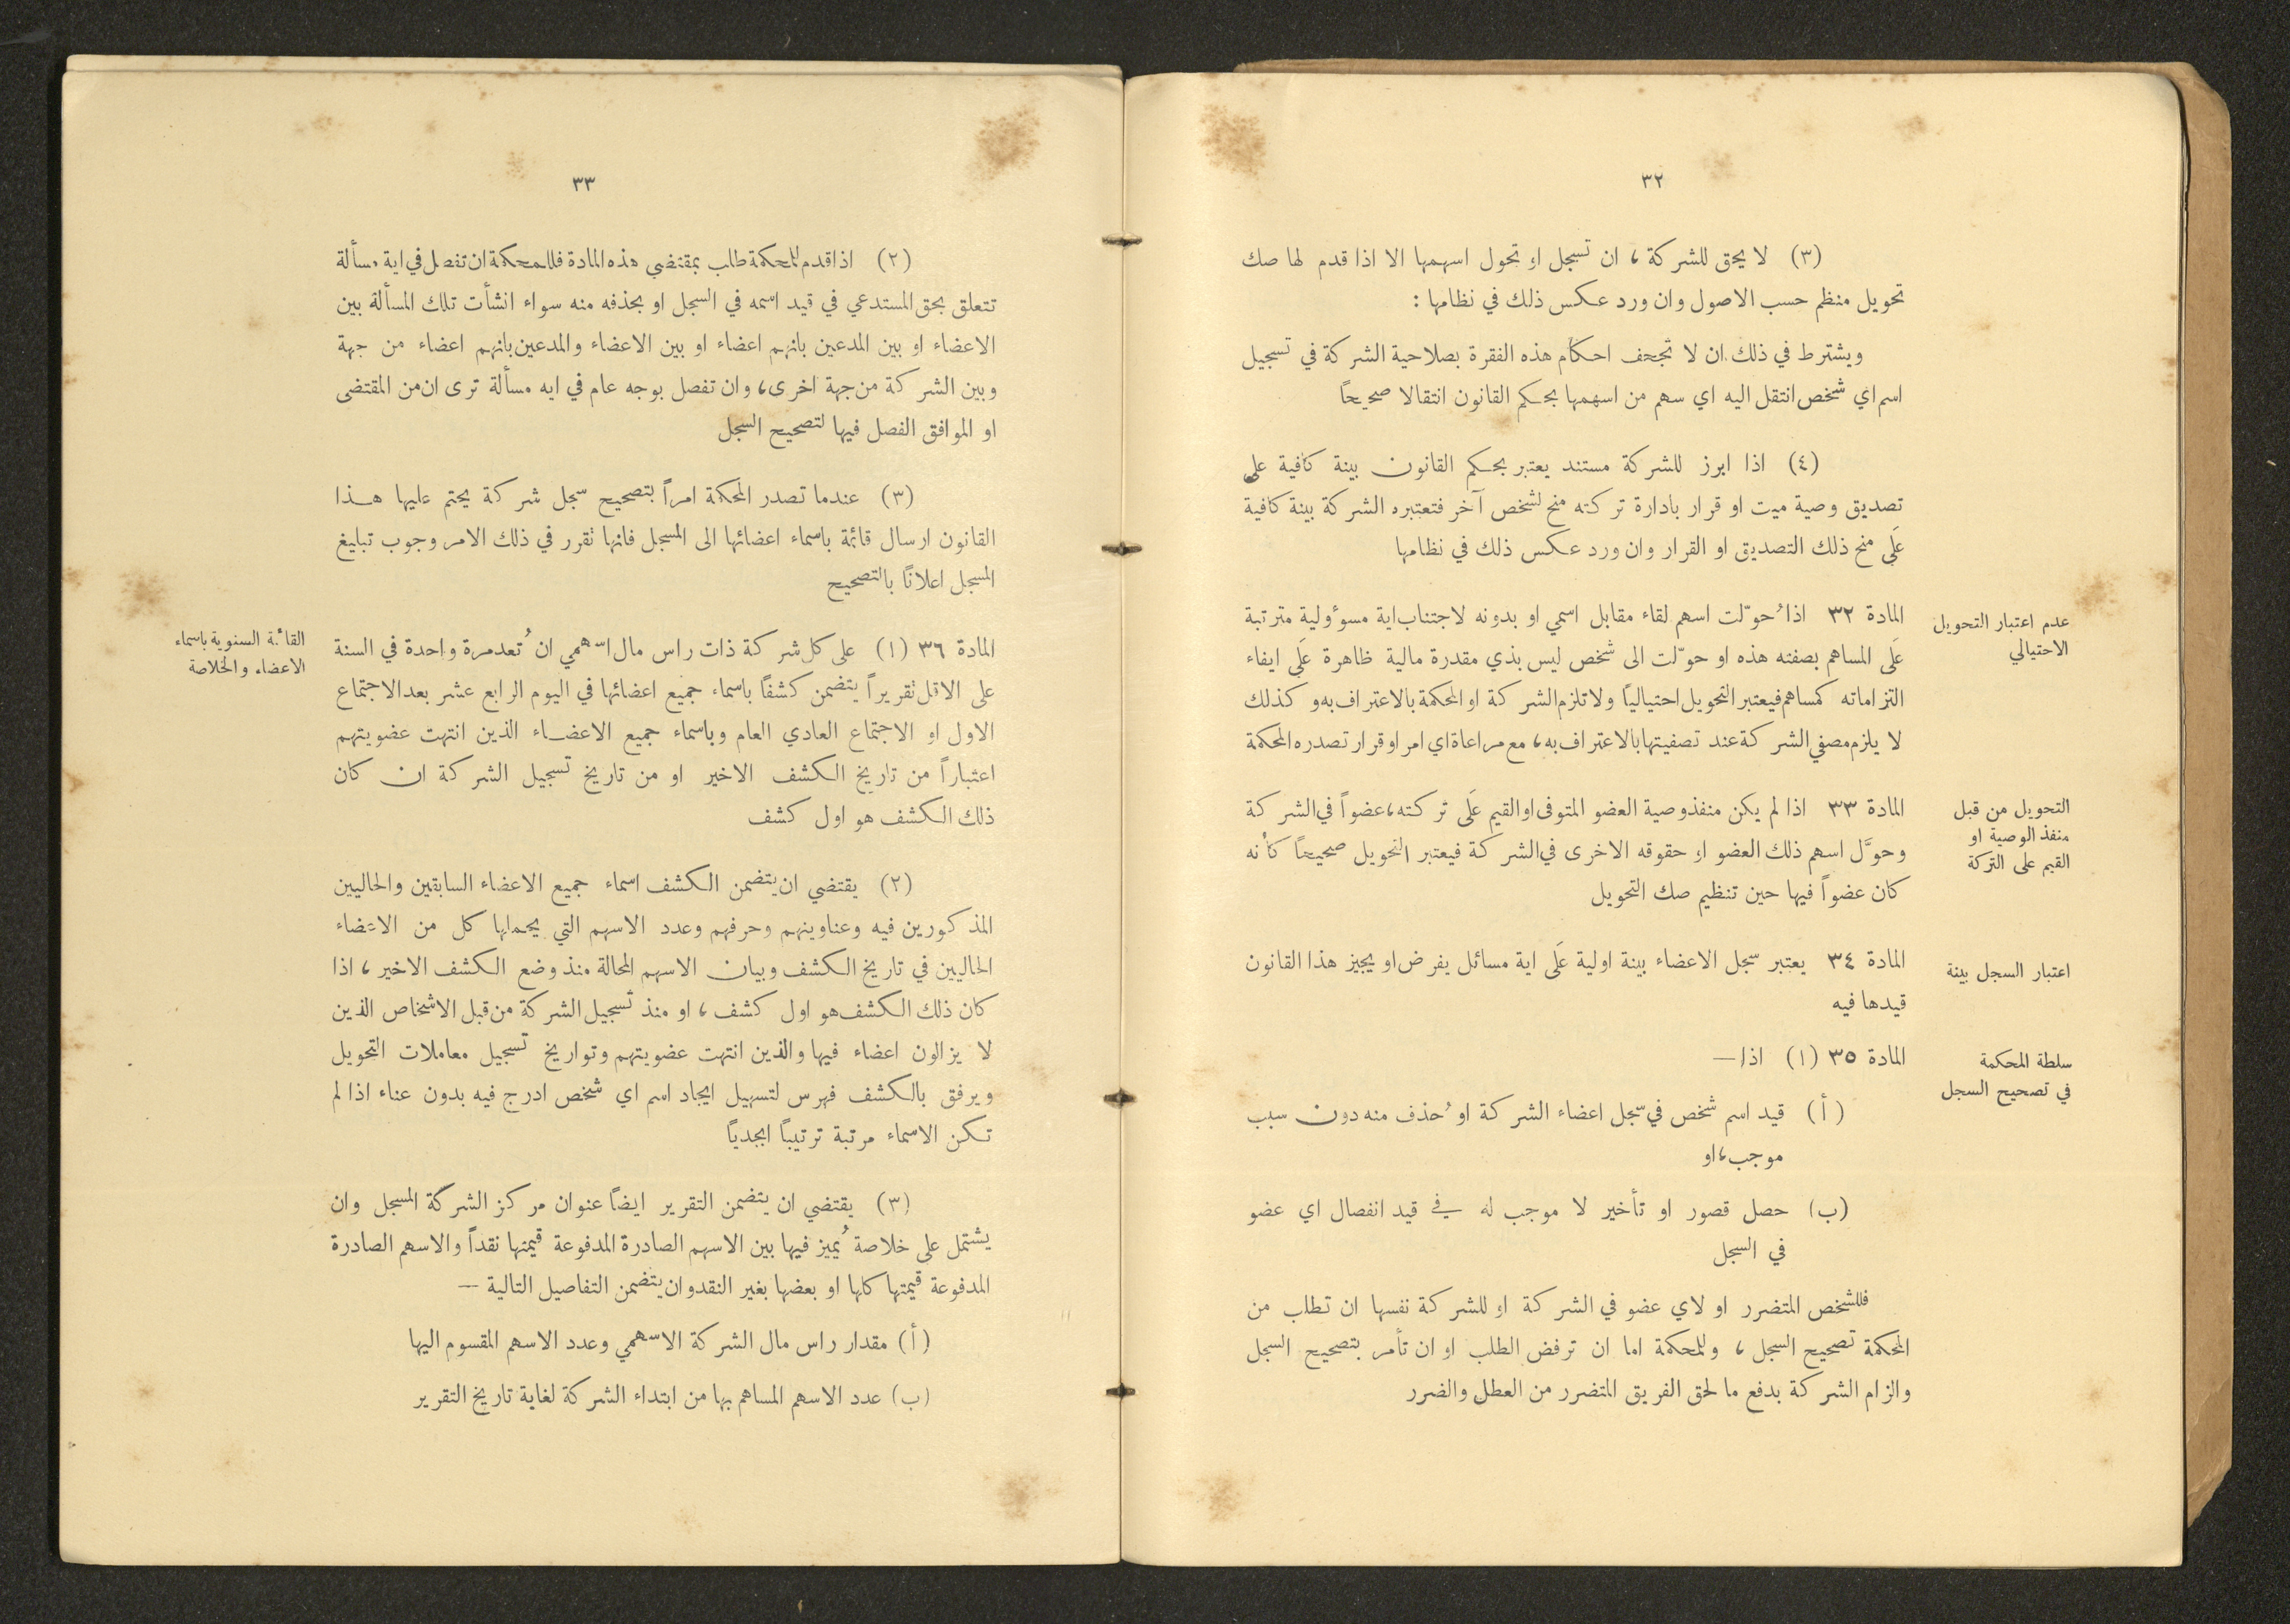 ٣٢
(٣) لا يحق للشركة ، ان تسجل او تحول اسهمها الا اذا قدم لها صك
تحويل منظم حسب الاصول وان ورد عكس ذلك في نظامها :
ويشترط في ذلك ان لا تجحف احكام هذه الفقرة بصلاحية الشركة في تسجيل
اسم اي شخص انتقل اليه اي سهم من اسهمها بحكم القانون انتقالا صحيحاً
(٤) اذا ابرز للشركة مستند يعتبر بحكم القانون بينة كافية على
تصديق وصية ميت او قرار بادارة تركته منح لشخص آخر فتعتبره الشركة بينة كافية
عَلَى منح ذلك التصديق او القرار وان ورد عكس ذلك في نظامها
عدم اعتبار التحويل
الاحتيالي
المادة ٣٢ اذا ُحوّلت اسهم لقاء مقابل اسمي او بدونه لاجتناب اية مسوٴولية مترتبة
عَلَى المساهم بصفته هذه او حوّلت الى شخص ليس بذي مقدرة مالية ظاهرة عَلَى ايفاء
التزاماته كمساهم فيعتبر التحويل احتيالياً ولا تلزم الشركة او المحكمة بالاعتراف به و كذلك
لا يلزم مصفي الشركة عند تصفيتها بالاعتراف به ، مع مراعاة اي امر او قرار تصدره المحكمة
التحويل من قبل
منفذ الوصية او
القيم على التركة
المادة ٣٣ اذا لم يكن منفذ وصية العضو المتوفى او القيم عَلَى تركته ، عضواً في الشركة
وحوَّل اسهم ذلك العضو او حقوقه الاخرى في الشركة فيعتبر التحويل صحيحاً كأنه
كان عضواً فيها حين تنظيم صك التحويل
اعتبار السجل بينة
المادة ٣٤ يعتبر سجل الاعضاء بينة اولية عَلَى اية مسائل يفرض او يجيز هذا القانون
قيدها فيه
سلطة المحكمة
في تصحيح السجل
المادة ٣٥ (١) اذا —
(أ) قيد اسم شخص في سجل اعضاء الشركة او ُحذف منه دون سبب
موجب ، او
(ب) حصل قصور او تأخير لا موجب له في قيد انفصال اي عضو
في السجل
فللشخص المتضرر او لاي عضو في الشركة او للشركة نفسها ان تطلب من
المحكمة تصحيح السجل ، وللمحكمة اما ان ترفض الطلب او ان تأمر بتصحيح السجل
والزام الشركة بدفع ما لحق الفريق المتضرر من العطل والضرر
٣٣
(٢) اذا قدم للمحكمة طلب بمقتضى هذه المادة فللمحكمة ان تفصل في اية مسألة
تتعلق بحق المستدعي في قيد اسمه في السجل او بحذفه منه سواء انشأت تلك المسألة بين
الاعضاء او بين المدعين بانهم اعضاء او بين الاعضاء والمدعين بانهم اعضاء من جهة
وبين الشركة من جهة اخرى ، وان تفصل بوجه عام في ايه مسألة ترى ان من المقتضى
او الموافق الفصل فيها لتصحيح السجل
(٣) عندما تصدر المحكمة امراً بتصحيح سجل شركة يحتم عليها هذا
القانون ارسال قائمة باسماء اعضائها الى المسجل فانها تقرر في ذلك الامر وجوب تبليغ
المسجل اعلاناً بالتصحيح
القائمة السنوية باسماء
الاعضاء والخلاصة
المادة ٣٦ (١) على كل شركة ذات راس مال اسهمي ان ُتعد مرة واحدة في السنة
على الاقل تقريراً يتضمن كشفاً باسماء جميع اعضائها في اليوم الرابع عشر بعد الاجتماع
الاول او الاجتماع العادي العام وباسماء جميع الاعضاء الذين انتهت عضويتهم
اعتباراً من تاريخ الكشف الاخير او من تاريخ تسجيل الشركة ان كان
ذلك الكشف هو اول كشف
(٢) يقتضي ان يتضمن الكشف اسماء جميع الاعضاء السابقين والحاليين
المذكورين فيه وعناوينهم وحرفهم وعدد الاسهم التي يحملها كل من الاعضاء
الحاليين في تاريخ الكشف وبيان الاسهم المحالة منذ وضع الكشف الاخير ، اذا
كان ذلك الكشف هو اول كشف ، او منذ تسجيل الشركة من قبل الاشخاص الذين
لا يزالون اعضاء فيها والذين انتهت عضويتهم وتواريخ تسجيل معاملات التحويل
ويرفق بالكشف فهرس لتسهيل ايجاد اسم اي شخص ادرج فيه بدون عناء اذا لم
تكن الاسماء مرتبة ترتيباً ابجدياً
(٣) يقتضي ان يتضمن التقرير ايضاً عنوان مركز الشركة المسجل وان
يشتمل على خلاصة ُيميز فيها بين الاسهم الصادرة المدفوعة قيمتها نقداً والاسهم الصادرة
المدفوعة قيمتها كلها او بعضها بغير النقد وان يتضمن التفاصيل التالية —
(أ) مقدار راس مال الشركة الاسهمي وعدد الاسهم المقسوم اليها
(ب) عدد الاسهم المساهم بها من ابتداء الشركة لغاية تاريخ التقرير